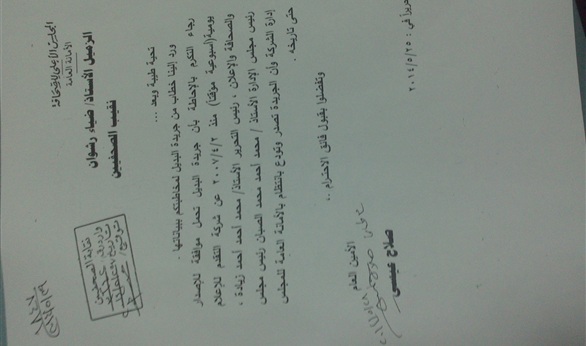 المجلس الأعلى للصحافة
الأمانة العامة
الزميل الأستاذ / ضياء رشوان
نقيب الصحفيين
نقابة الصحفيين
تحية طيبة وبعد ...
ورد إلينا خطاب من جريدة البديل لمخاطبتكم ببياناتها .
رجاء التكرم بالإحاطة بأن جريدة البديل تحمل موافقة للإصدار
يومية (أسبوعية مؤقتا) منذ ٢٠٠٧/٤/٢ عن شركة التقدم للإعلام
والصحافة والإعلان ، رئيس التحرير الأستاذ / محمد أحمد أحمد زيادة ،
رئيس مجلس الإدارة الأستاذ / محمد أحمد محمد الصبان رئيس مجلس
إدارة الشركة وأن الجريدة تصدر وتودع بانتظام بالأمانة العامة للمجلس
حتى تاريخه .
وتفضلوا بقبول فائق الاحترام ..
الأمين العام
صلاح عيسى
تحريرا في : ٢٠١٤/٥/٢٥